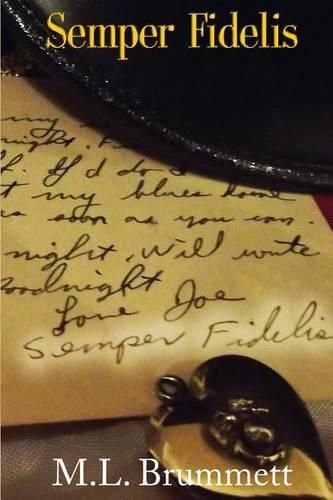 Semper Fidelis
my
night.
If I'd do
t my blues home
as soon as you can.
night, Will write
Goodnight
Love Joe
Semper Fidelis
M.L. Brummett